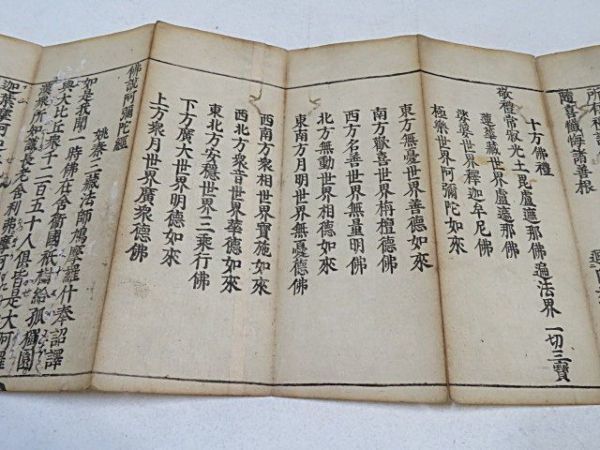 所
隨喜懺悔諸善根
十方佛禮
敬禮常寂光土毘盧遮那佛 遍法界 一切三寶
蓮華藏世界盧遮那佛
娑婆世界釋迦牟尼佛
極樂世界阿彌陀如來
東方無憂世界善德如來
南方歡喜世界栴檀德佛
西方名善世界無量明佛
北方無動世界相德如來
東南方月明世界無憂德佛
西南方衆相世界寶施如來
西北方衆音世界華德如來
東北方安穩世界三乘行佛
下方廣大世界明德如來
上方衆月世界廣衆德佛
佛說阿彌陀經
姚秦三藏法師鳩摩羅什奉詔譯
如是我聞一時佛在舍衛國祇樹給孤獨園
與大比丘衆千二百五十人俱皆是大阿羅
漢衆所知識長老舍利弗摩訶
迦葉摩訶